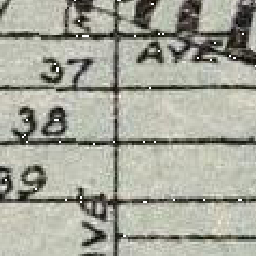 AVE
37
38
39
AVE